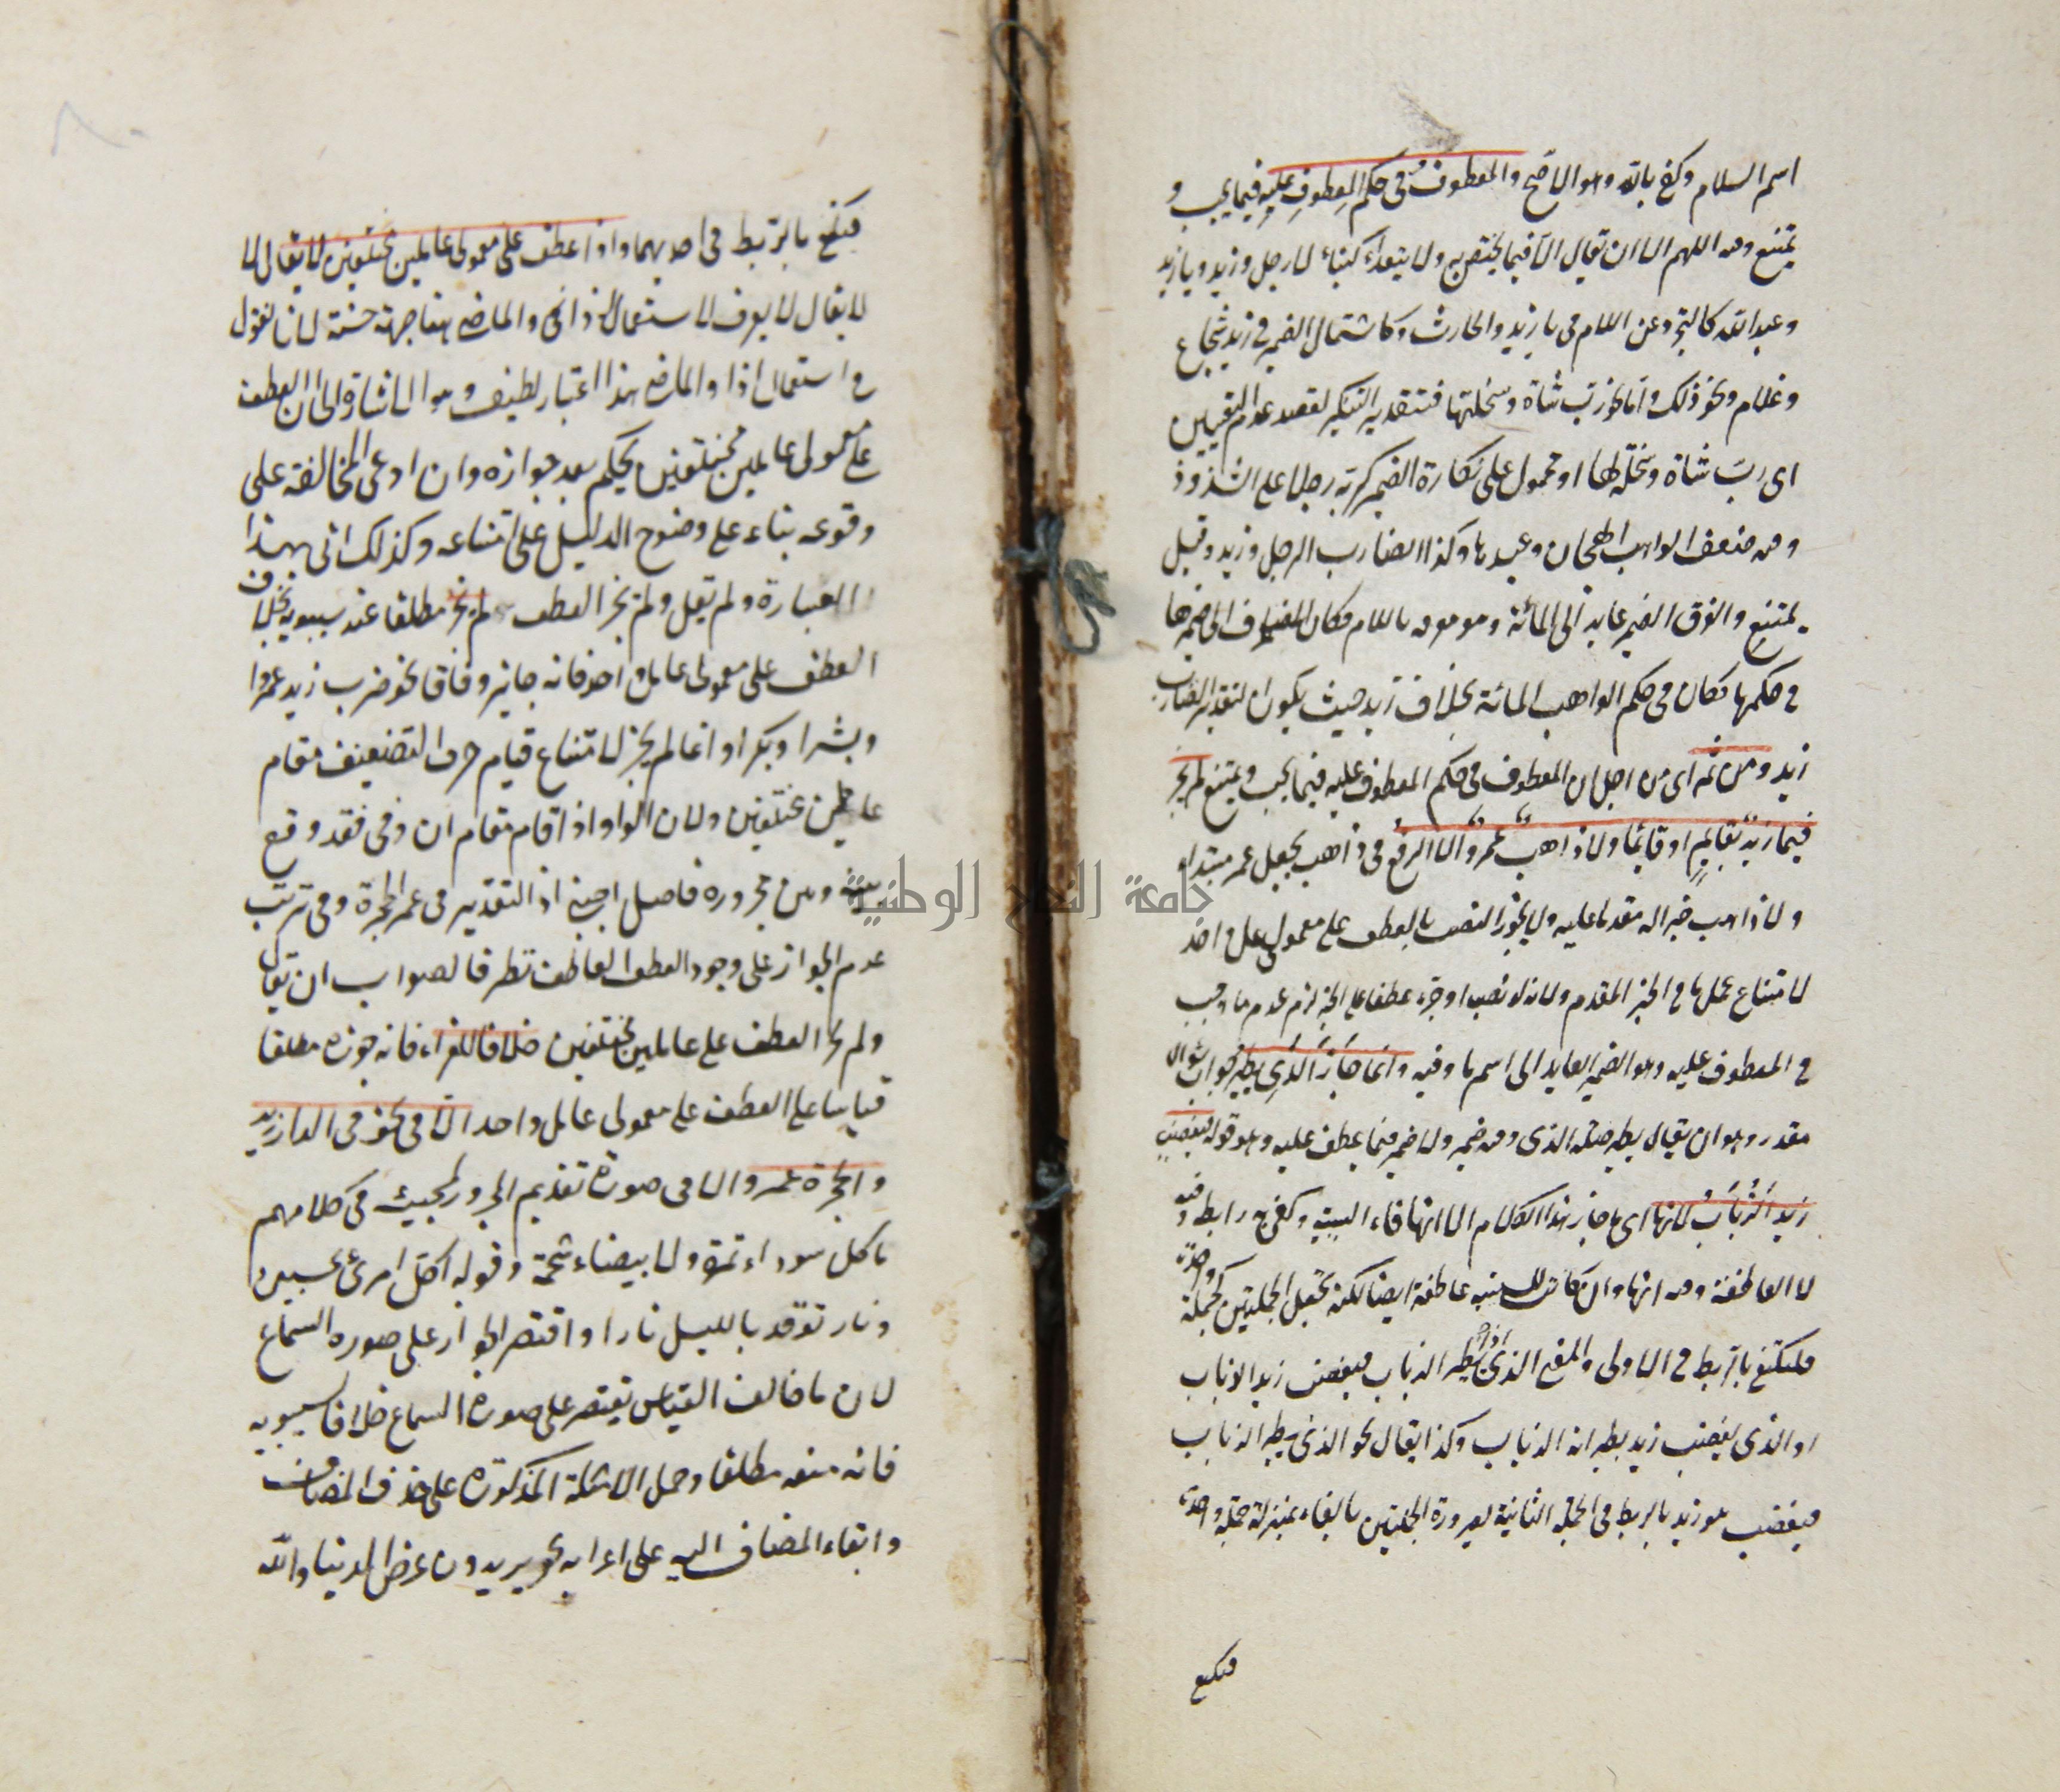 اسم السلام وكفى بالله وهو الاصح والمعطوف في حكم المعطوف عليه فيما يجب و
يمتنع ومن اللهم الا ان يقال الا فيما يختص به ولا يتعداه كبناء لا رجل وزيد ويا زيد
وعبد الله كالتجرد عن اللام في يا زيد والحارث وكاشتمال الضمير في زيد شجاع
وغلام ونحو ذلك واما نحو رب شاة وسخلتها فبتقدير التنكير لقصد عدم التعيين
اى رب شاة وسخلة لها او محمول على نكارة الضمير كربه رجلا على الشذوذ
ومن ضعف الواهب الهجان وعبدها وكذا الضارب الرجل وزيد وقيل
يمتنع والفرق الضمير عايد الى المائة وهو معرف باللام فكان المضاف الى ضميرها
في حكمها فكان في حكم الواهب المائة بخلاف زيد حيث يكون التقدير الضارب
زيد ومن ثم اى من اجل ان المعطوف في حكم المعطوف عليه فيما يجب ويمتنع لم يجز
في ما زيد بقايم او قائما ولا ذاهب عمرو الا الرفع في ذاهب بجعل عمر مبتداء
ولا ذاهب خبرا له مقدما عليه ولا يجوز النصب بالعطف على معمول عامل واحد
لامتناع عمل ما في الخبر المقدم ولانه لو نصب او جر عطفا على الخبر لزم عدم ما وجب
في المعطوف عليه وهو الضمير العايد الى اسم ما وفيه وانما جاز الذي يطير جواب سؤال
مقدر وهو ان يقال يطير صلة الذى وفيه ضمير ولا ضمير فيما عطف عليه وهو قوله فيغضب
زيد الذباب لانها اى ما جاز هذا الكلام الا انها فاء السببية وكفى به رابط وفيه
لا العاطفة ومن انها وان كانت للسببية عاطفة ايضا لكنه تجعل الجملتين كجملة واحدة
فيكتفى بالربط في الاولى والمعنى الذى اذا يطير الذباب فيغضب زيد الذباب
او الذى يغضب زيد بطيرانه الذباب وكذا يقال نحو الذى يطير الذباب
فيغضب هو زيد بالربط في الجملة الثانية لصيرورة الجملتين بالفاء بمنزلة جملة واحدة
فيكتفى
فيكتفى بالربط في احديهما واذا عطف على معمولي عاملين مختلفين لا يقال الا
لا يقال لا يعرف لاستعمال اذا في والماضى هنا جهة حسنة لانا نقول
في استعمال اذا والماضى هذا اعتبار لطيف وهو الاشارة الى ان العطف
على معمولى عاملين مختلفين يحكم بعد جوازه وان ادعى المخالفة على
وقوعه بناء على وضوح الدليل على امتناعه وكذلك اتى بهذا
العبارة ولم يقل ولم يجز العطف لم يجز مطلقا عند سيبويه بخلاف
العطف على معمولى عامل واحد فانه جايز وفاقا نحو ضرب زيد عمروا
وبشرا وبكرا وانما لم يجز لامتناع قيام حرف التضعيف مقام
عاملين مختلفين ولان الواو اذا قام مقام ان وفى فقد وقع
بينه وبين مجروره فاصل اجنبى اذ التقدير في عمر الحجرة وفى ترتب
عدم الجواز على وجود العطف العاطف نظر فالصواب ان يقال
ولم يجز العطف على عاملين مختلفين خلافا للفراء فانه جوزه مطلقا
قياسا على العطف على معمولى عامل واحد الا في نحو في الدار زيد
والحجرة عمرو الا في صورة تقديم المجرور لمجيئه في كلامهم
ما كل سوداء تمرة ولا بيضاء شحمة وقوله اكل امرئ تحسبين
ونار توقد بالليل نارا واقتصر الجواز على صوره السماع
لان ما خالف القياس يقتصر على صورة السماع خلافا لسيبويه
فانه منعه مطلقا وحمل الامثلة المذكورة على حذف المضاف
وابقاء المضاف اليه على اعرابه نحو يريدون عرض الدنيا والله
جامعة النجاح الوطنية